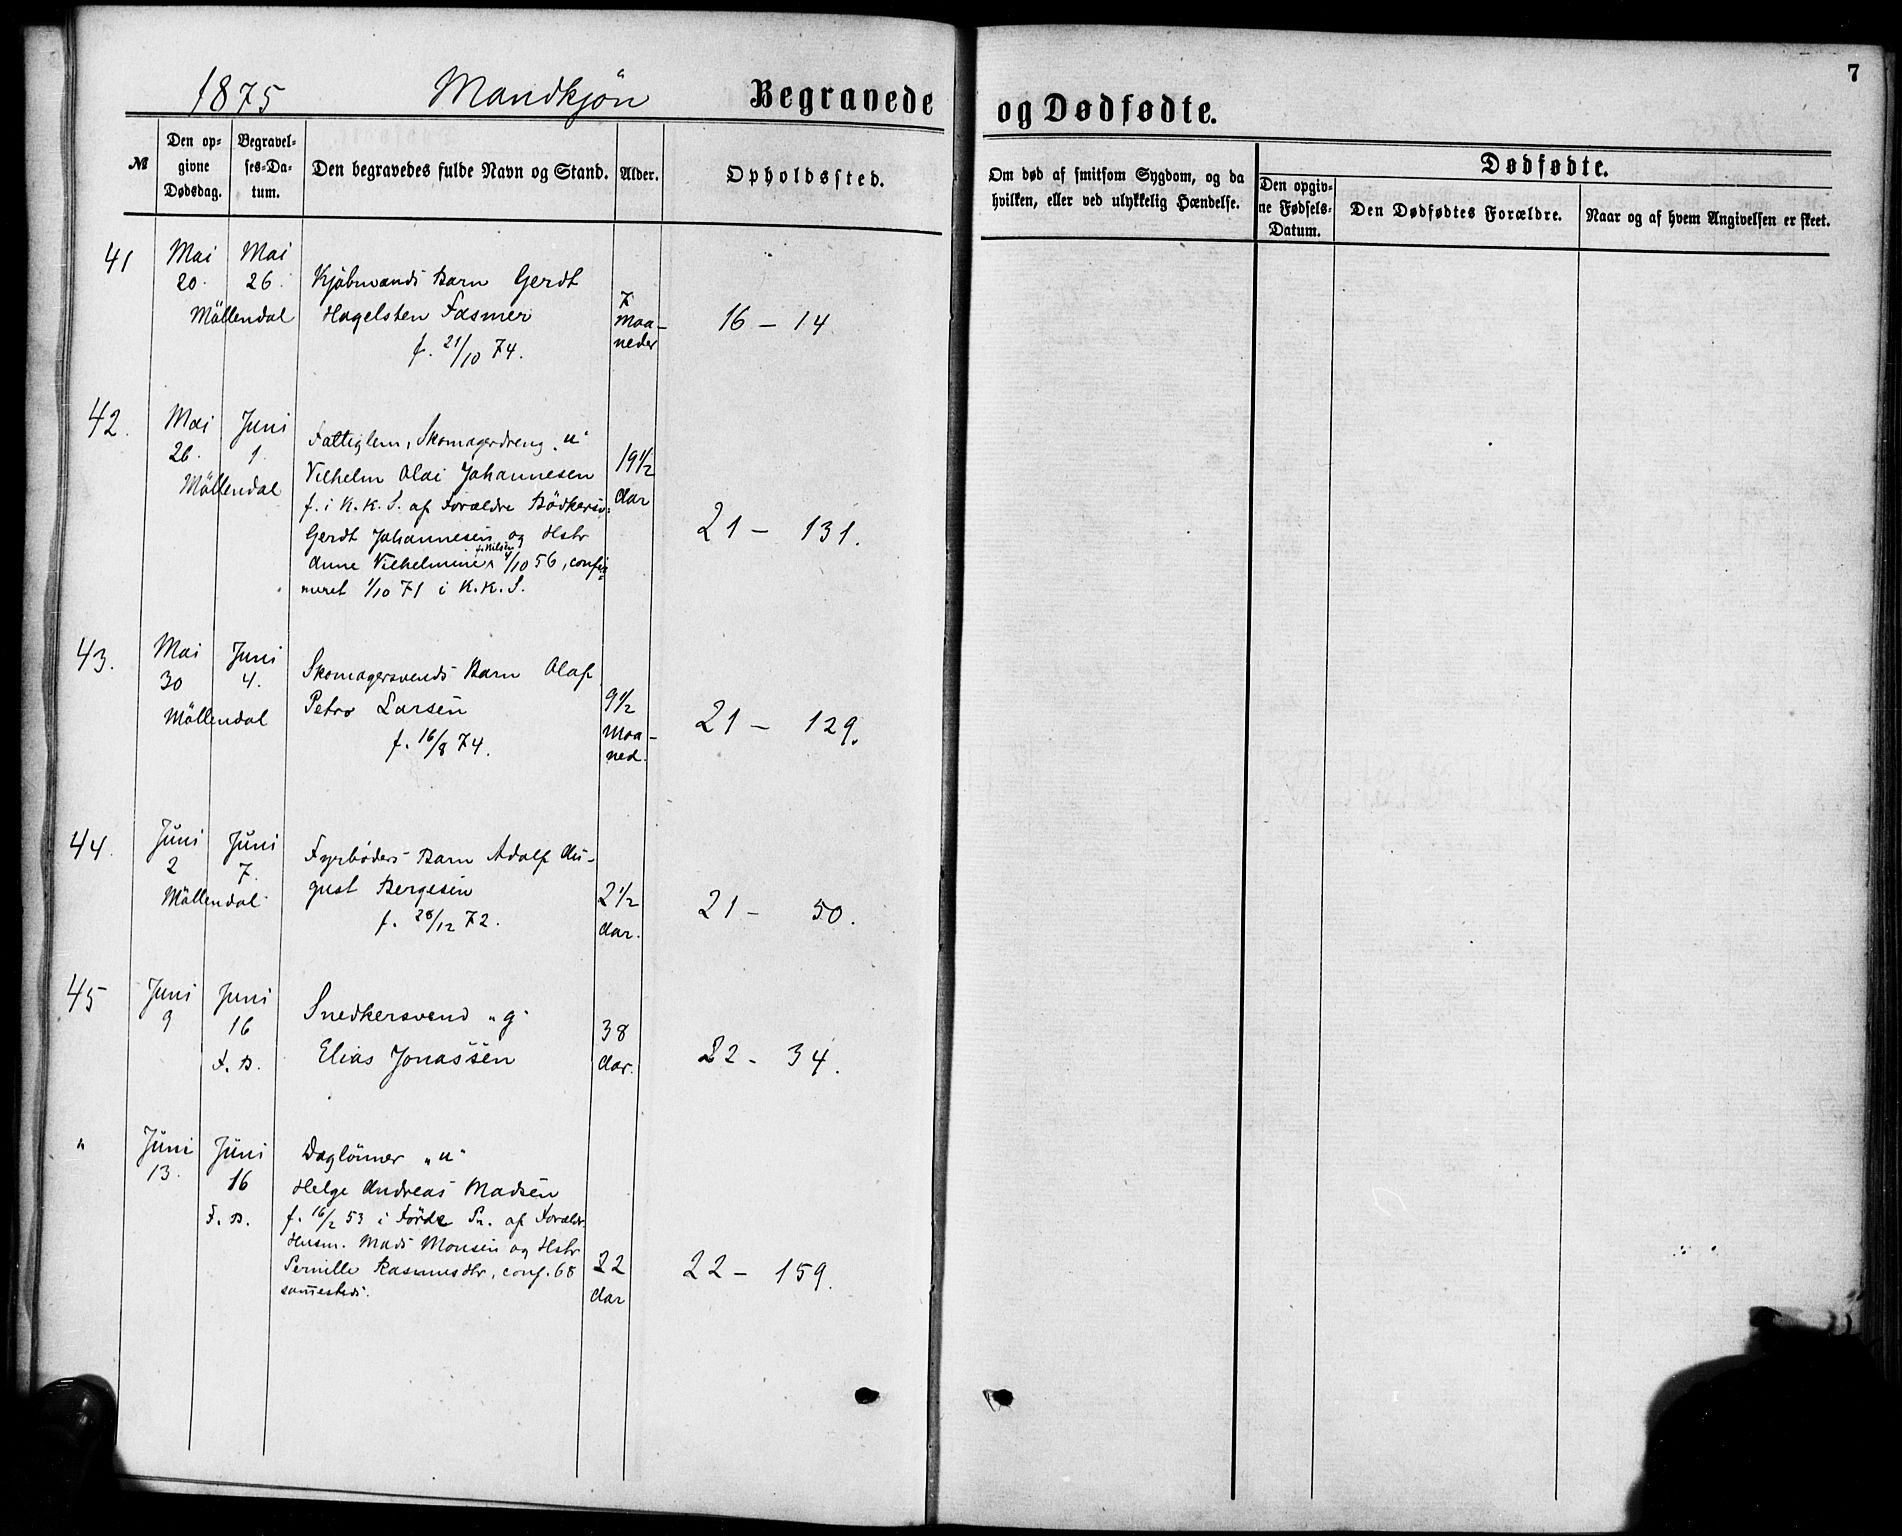 7
1875 Mandkjön Begravede og Dødfødte.
№
Den op-
givne
Dødsdag.
Begravel-
ses-Da-
tum.
Den begravedes fulde Navn og Stand.
Alder.
Opholdssted.
Om død af smitsom Sygdom, og da
hvilken, eller ved ulykkelig Hændelse.
Dødfødte.
Den opgiv-
ne Fødsels-
Datum.
Den Dødfødtes Forældre.
Naar og af hvem Angivelsen er skeet.
41 Mai Mai
20. 26. Kjøbmands Barn Gerdt
Möllendal Hagelsten Fasmer 7 Maa- 16 – 14
f. 21/10 74. neder
42. Mai Juni
26. 1. Fattiglem, Skomagerdreng „u“
Vilhelm Olai Johannesen 19 1/2
Möllendal
f. i K. K. S. af Forældre Bödkersv: Aar
Gerdt Johannesen og Hstr 21 – 131.
Anne Vilhelmine f. Nilsen 4/10 56, confir=
meret 1/10 71 i K. K. S.
43. Mai Juni
30 4. Skomagersvends Barn Olaf
Möllendal Petro Larsen 9 1/2 21 – 129.
f. 16/8 74. Maa-
ned.
44. Juni Juni
2 7. Fyrbøders Barn Adolf Au-
Möllendal gust Bergesen 2 1/2 21 – 50.
f. 28/12 72. Aar.
45 Juni Juni
9 16 Snedkersvend „g“ 38
F. B. Elias Jonassen Aar. 22 - 34.
" Juni Juni Daglönner „u“
13. 16 Helge Andreas Madsen
F. B. f. 16/2 53 i Förde Pr. af Forældr.
Husm. Mads Monsen og Hstr
Pernille Rasmusdtr, conf. 68 22 22 – 159.
sammesteds. Aar